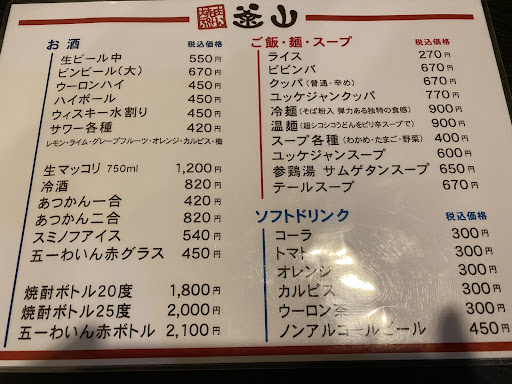 釜山
お酒 税込価格
生ビール中 550円
ビンビール(大) 670円
ウーロンハイ 450円
ハイボール 450円
ウィスキー水割り 450円
サワー各種 420円
レモン・ライム・グレープフルーツ・オレンジ・カルピス・梅
生マッコリ 750ml 1,200円
冷酒 820円
あつかん一合 420円
あつかん二合 820円
スミノフアイス 540円
五一わいん赤グラス 450円
焼酎ボトル20度 1,800円
焼酎ボトル25度 2,000円
五一わいん赤ボトル 2,100円
ご飯・麺・スープ 税込価格
ライス 270円
ビビンバ 670円
クッパ(普通・辛め) 670円
ユッケジャンクッパ 770円
冷麺(そば粉入 弾力ある独特の食感) 900円
温麺(超シコシコうどんをピリ辛スープで) 900円
スープ各種(わかめ・たまご・野菜) 400円
ユッケジャンスープ 600円
参鶏湯 サムゲタンスープ 650円
テールスープ 670円
ソフトドリンク 税込価格
コーラ 300円
トマト 300円
オレンジ 300円
カルピス 300円
ウーロン茶 300円
ノンアルコールビール 450円